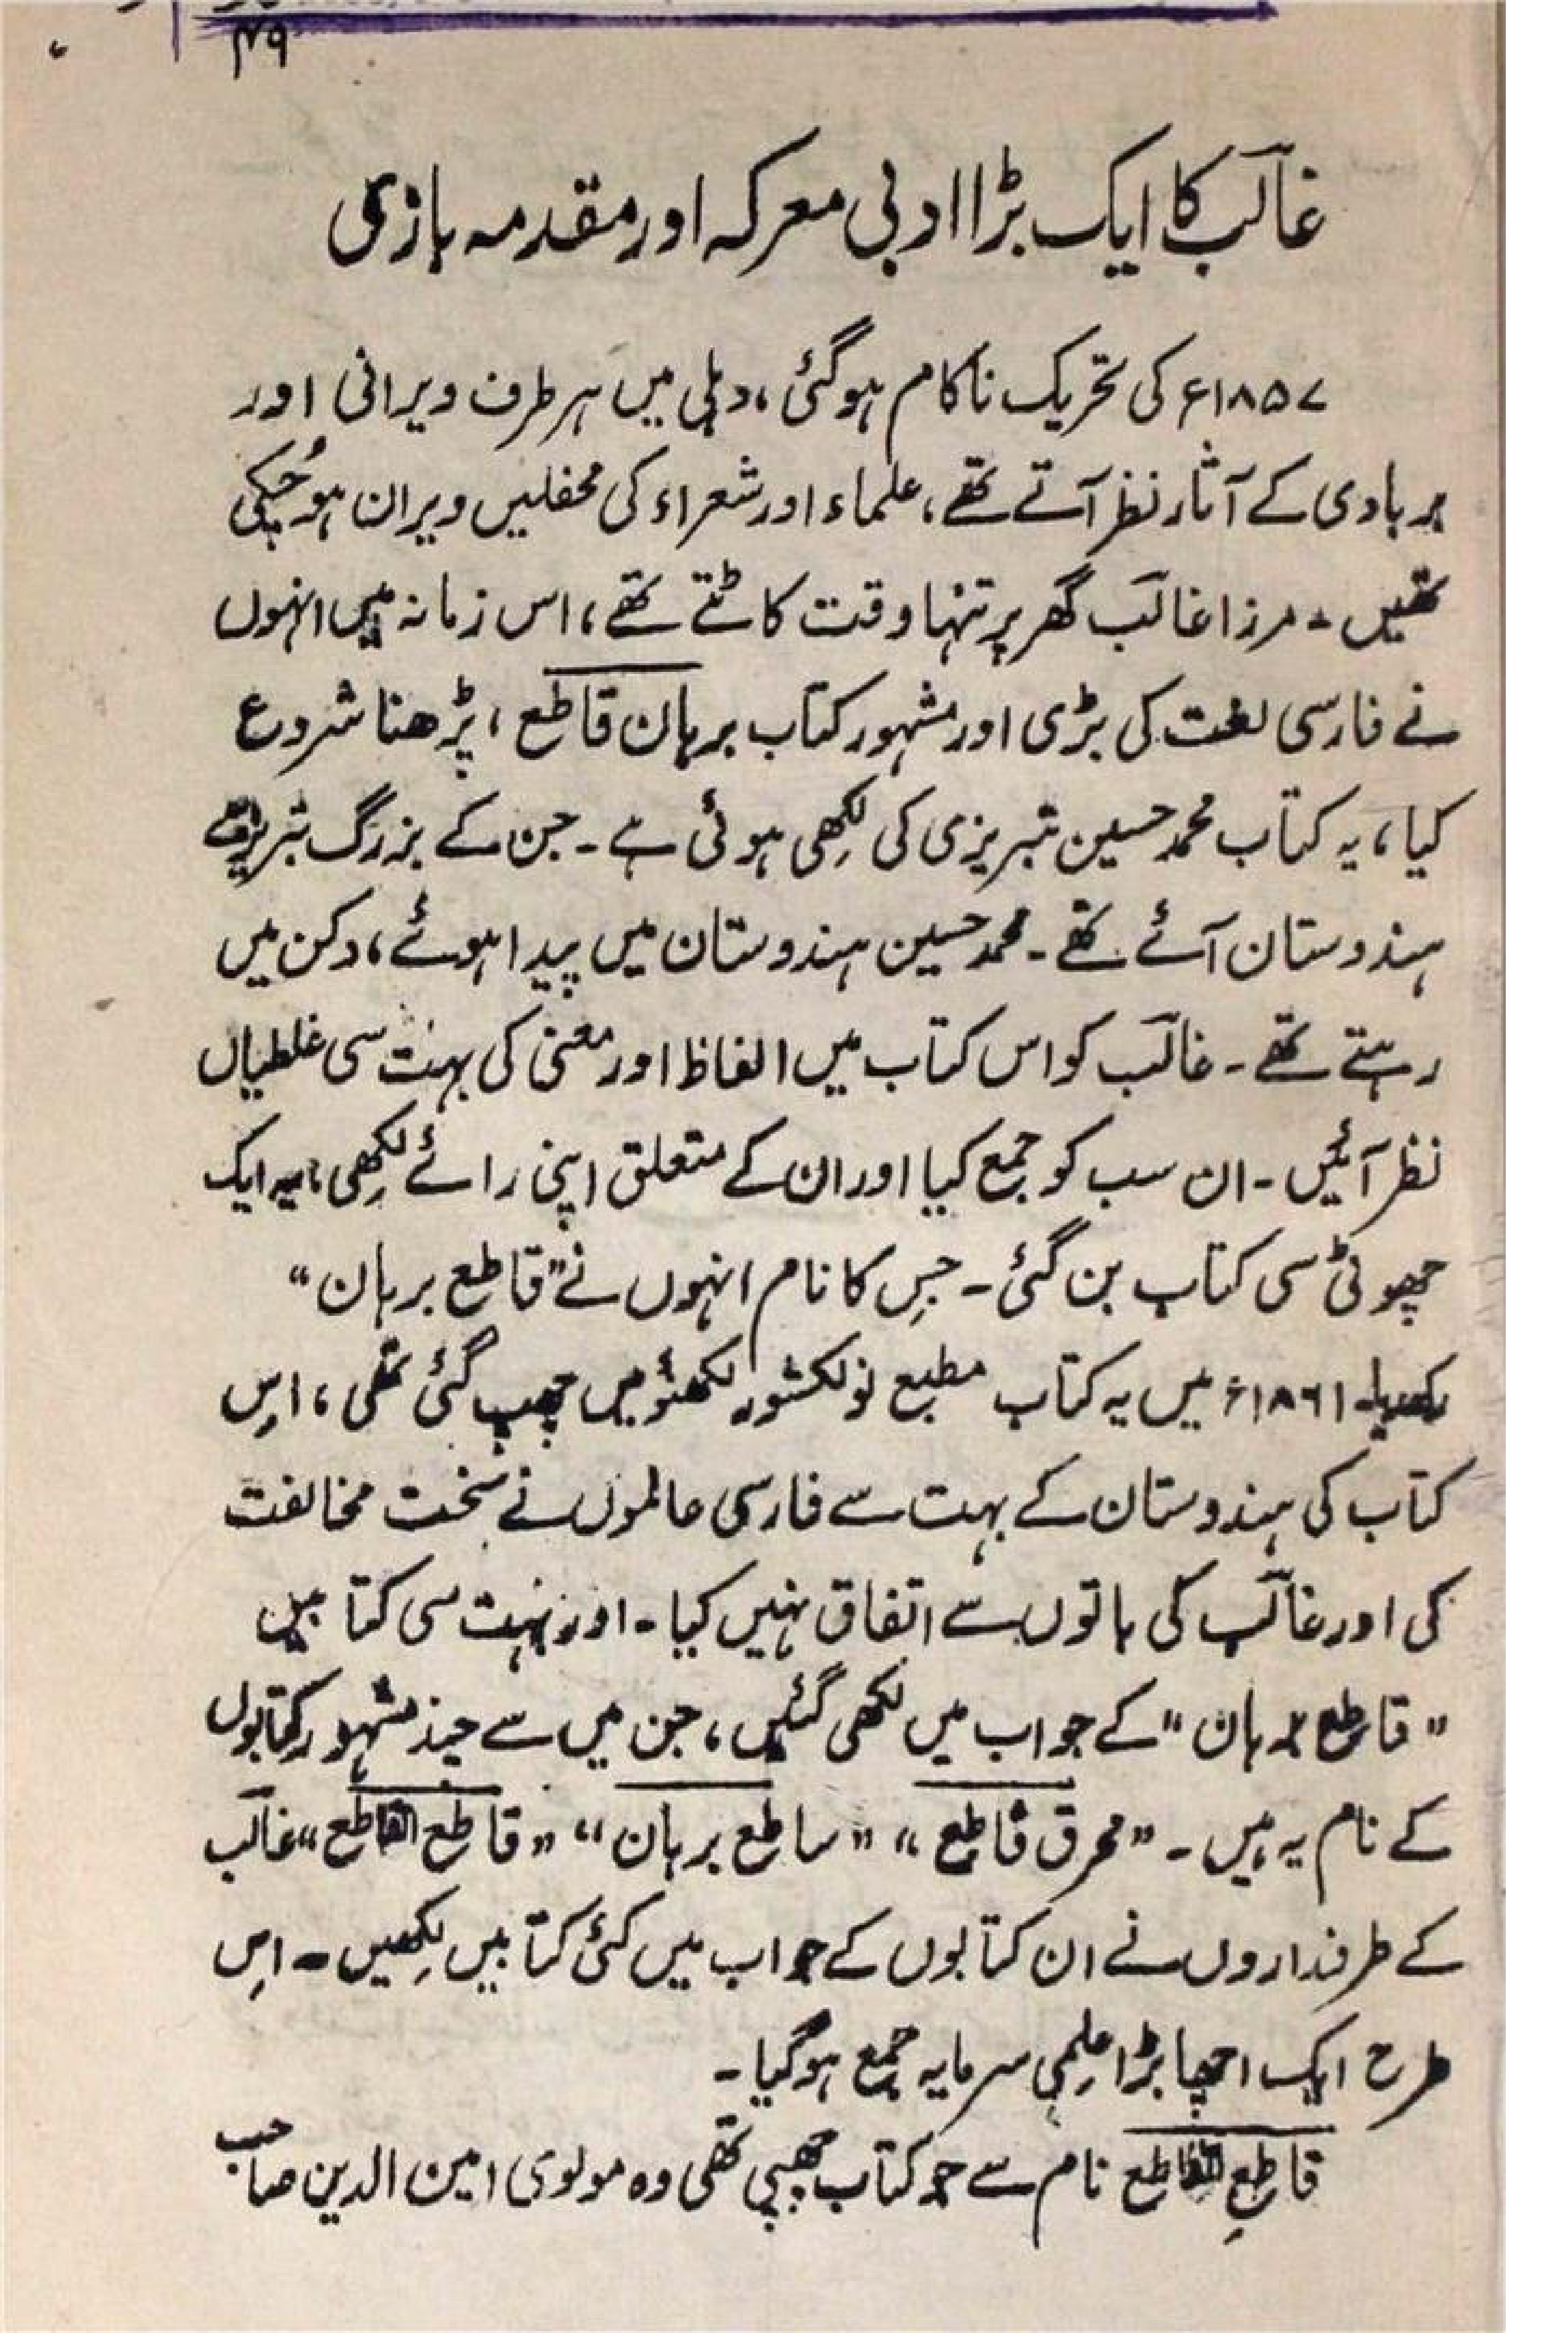 ۴۹
غالبؔ کا ایک بڑا ادبی معرکہ اور مقدمہ بازی
۱۸۵۷ء کی تحریک ناکام ہوگئی، دہلی میں ہر طرف ویرانی اور
بربادی کے آثار نظر آتے تھے، علماء اور شعراء کی محفلیں ویران ہو چُکی
تھیں۔ مرزا غالبؔ گھر پر تنہا وقت کاٹتے تھے، اس زمانہ میں انہوں
نے فارسی لغت کی بڑی اور مشہور کتاب برہان قاطع، پڑھنا شروع
کیا، یہ کتاب محمد حسین تبریزی کی لِکھی ہوئی ہے۔ جن کے بزرگ تبریز سے
ہندوستان آئے تھے۔ محمد حسین ہندوستان میں پیدا ہوئے، دکن میں
رہتے تھے۔ غالبؔ کو اس کتاب میں الفاظ اور معنی کی بہت سی غلطیاں
نظر آئیں۔ ان سب کو جمع کیا اور ان کے متعلق اپنی رائے لِکھی، یہ ایک
چھوٹی سی کتاب بن گئی۔ جِس کا نام انہوں نے "قاطع برہان"
رکھا۔ ۱۸۶۱ء میں یہ کتاب مطبع نولکشور لکھنؤ میں چھپ گئی تھی، اِس
کتاب کی ہندوستان کے بہت سے فارسی عالموں نے سخت مخالفت
کی اور غالبؔ کی باتوں سے اتفاق نہیں کیا۔ اور بہت سی کتابیں
"قاطع برہان" کے جواب میں لکھی گئیں، جن میں سے چند مشہور کتابوں
کے نام یہ ہیں۔ "محرق قاطع"، "ساطع برہان"، "قاطع القاطع" غالبؔ
کے طرفداروں نے ان کتابوں کے جواب میں کئی کتابیں لِکھیں۔ اِس
طرح ایک اچھا بڑا عِلمی سرمایہ جمع ہوگیا۔
قاطعِ القاطع نام سے جو کتاب چھپی تھی وہ مولوی امین الدین صاحب